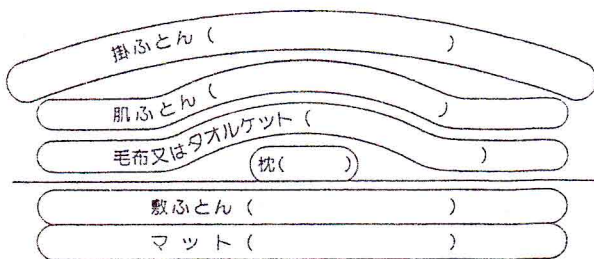 掛ふとん（　　　　　　）
肌ふとん（　　　　　　）
毛布又はタオルケット（　　　　　　）
枕（　　　）
敷ふとん（　　　　　　）
マット（　　　　　　）